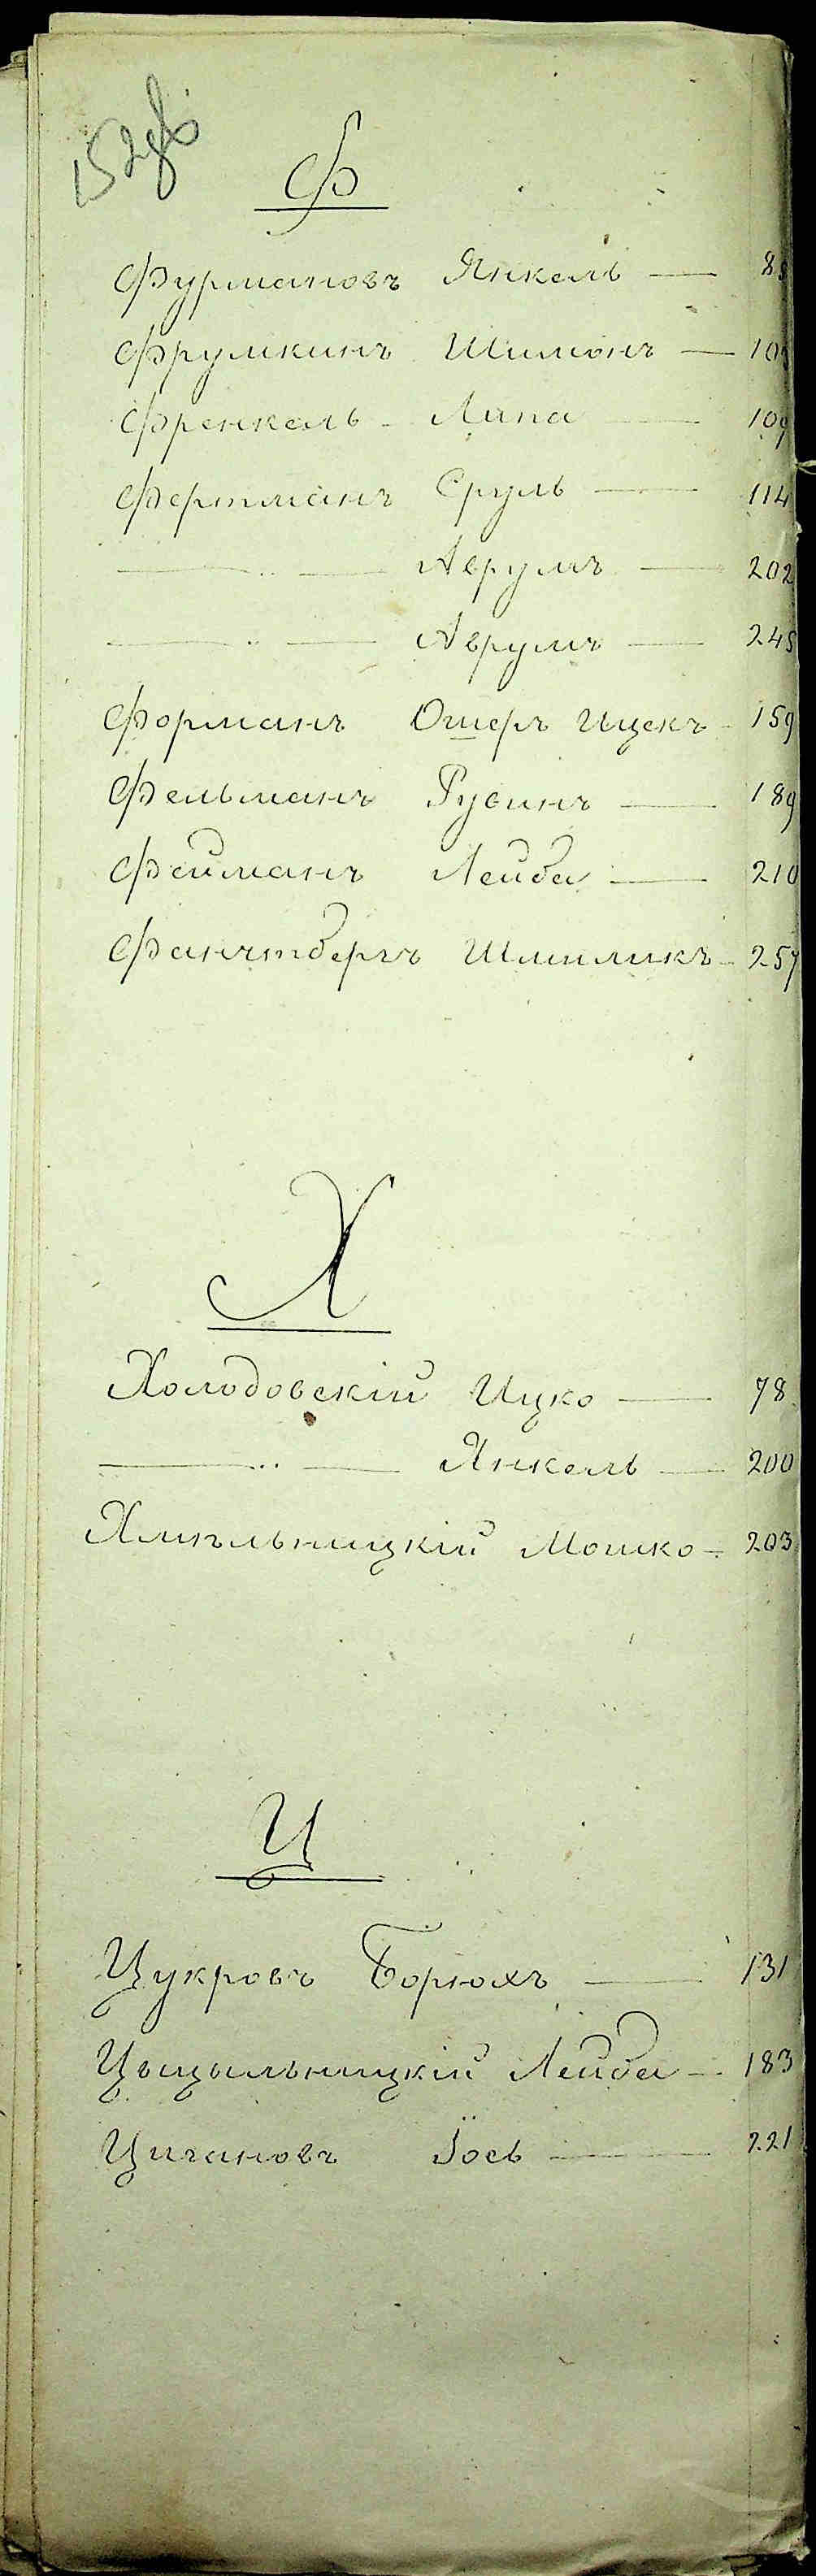 Ф
Фурмановъ Янкель — 8
Фрумкинъ Шимонъ — 10
Френкель - Липа — 109
Фертманъ Сруль — 114
— " — Аврумъ — 202
— " — Аврумъ — 245
Форманъ Ошеръ Ицекъ - 159
Фельманъ Рувинъ — 189
Фейманъ Лейба — 210
Шмиликъ - 257
Х
Холодовскій Ицко — 78
— " — Янкель — 200
Хмѣльницкій Мошко - 203
Ц
Цукровъ Борюхъ — 131
Цыцыльницкій Лейба - 183
Цигановъ Іось — 221